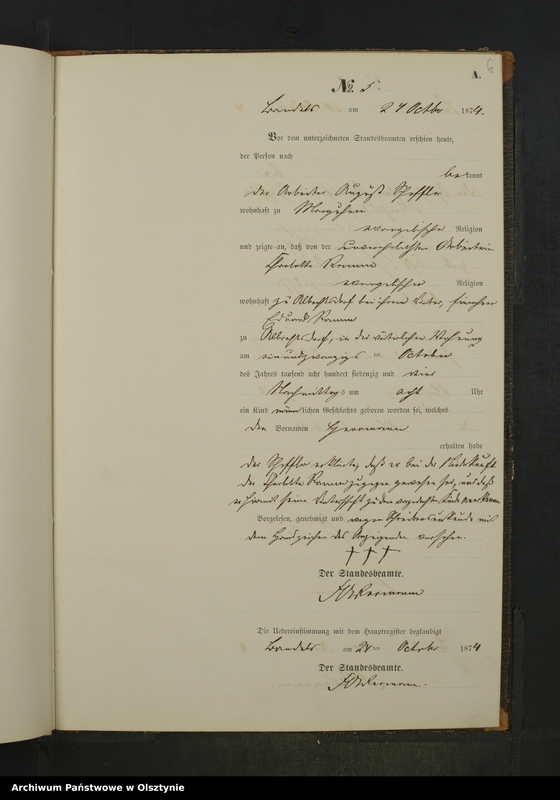 6
A.
No. 5.
Bandels am 24 Octbr 1874.
Vor dem unterzeichneten Standesbeamten erschien heute,
der Person nach
bekannt
der Arbeiter August
wohnhaft zu
evangelischer Religion
und zeigte an, daß von der unverehelichten Arbeiterin
Charlotte
evangelischer Religion
wohnhaft zu Albrechtsdorf bei ihrem Vater,
Eduard
zu Albrechtsdorf, in der väterlichen Wohnung
am einundzwanzigsten October
des Jahres tausend acht hundert siebenzig und vier
Nachmittags um acht Uhr
ein Kind männlichen Geschlechts geboren worden sei, welches
den Vornamen Herrmann
erhalten habe
Der erklärte, daß er bei der Niederkunft
der Charlotte zugegen gewesen sei, und daß
er hiermit seine Vaterschaft zu dem Kinde anerkenne
Vorgelesen, genehmigt und wegen Schreibensunkunde mit
dem Handzeichen des Anzeigenden versehen.
† † †
Der Standesbeamte.
Die Uebereinstimmung mit dem Hauptregister beglaubigt
Bandels am 24 ten Octbr 1874
Der Standesbeamte.
Archiwum Państwowe w Olsztynie